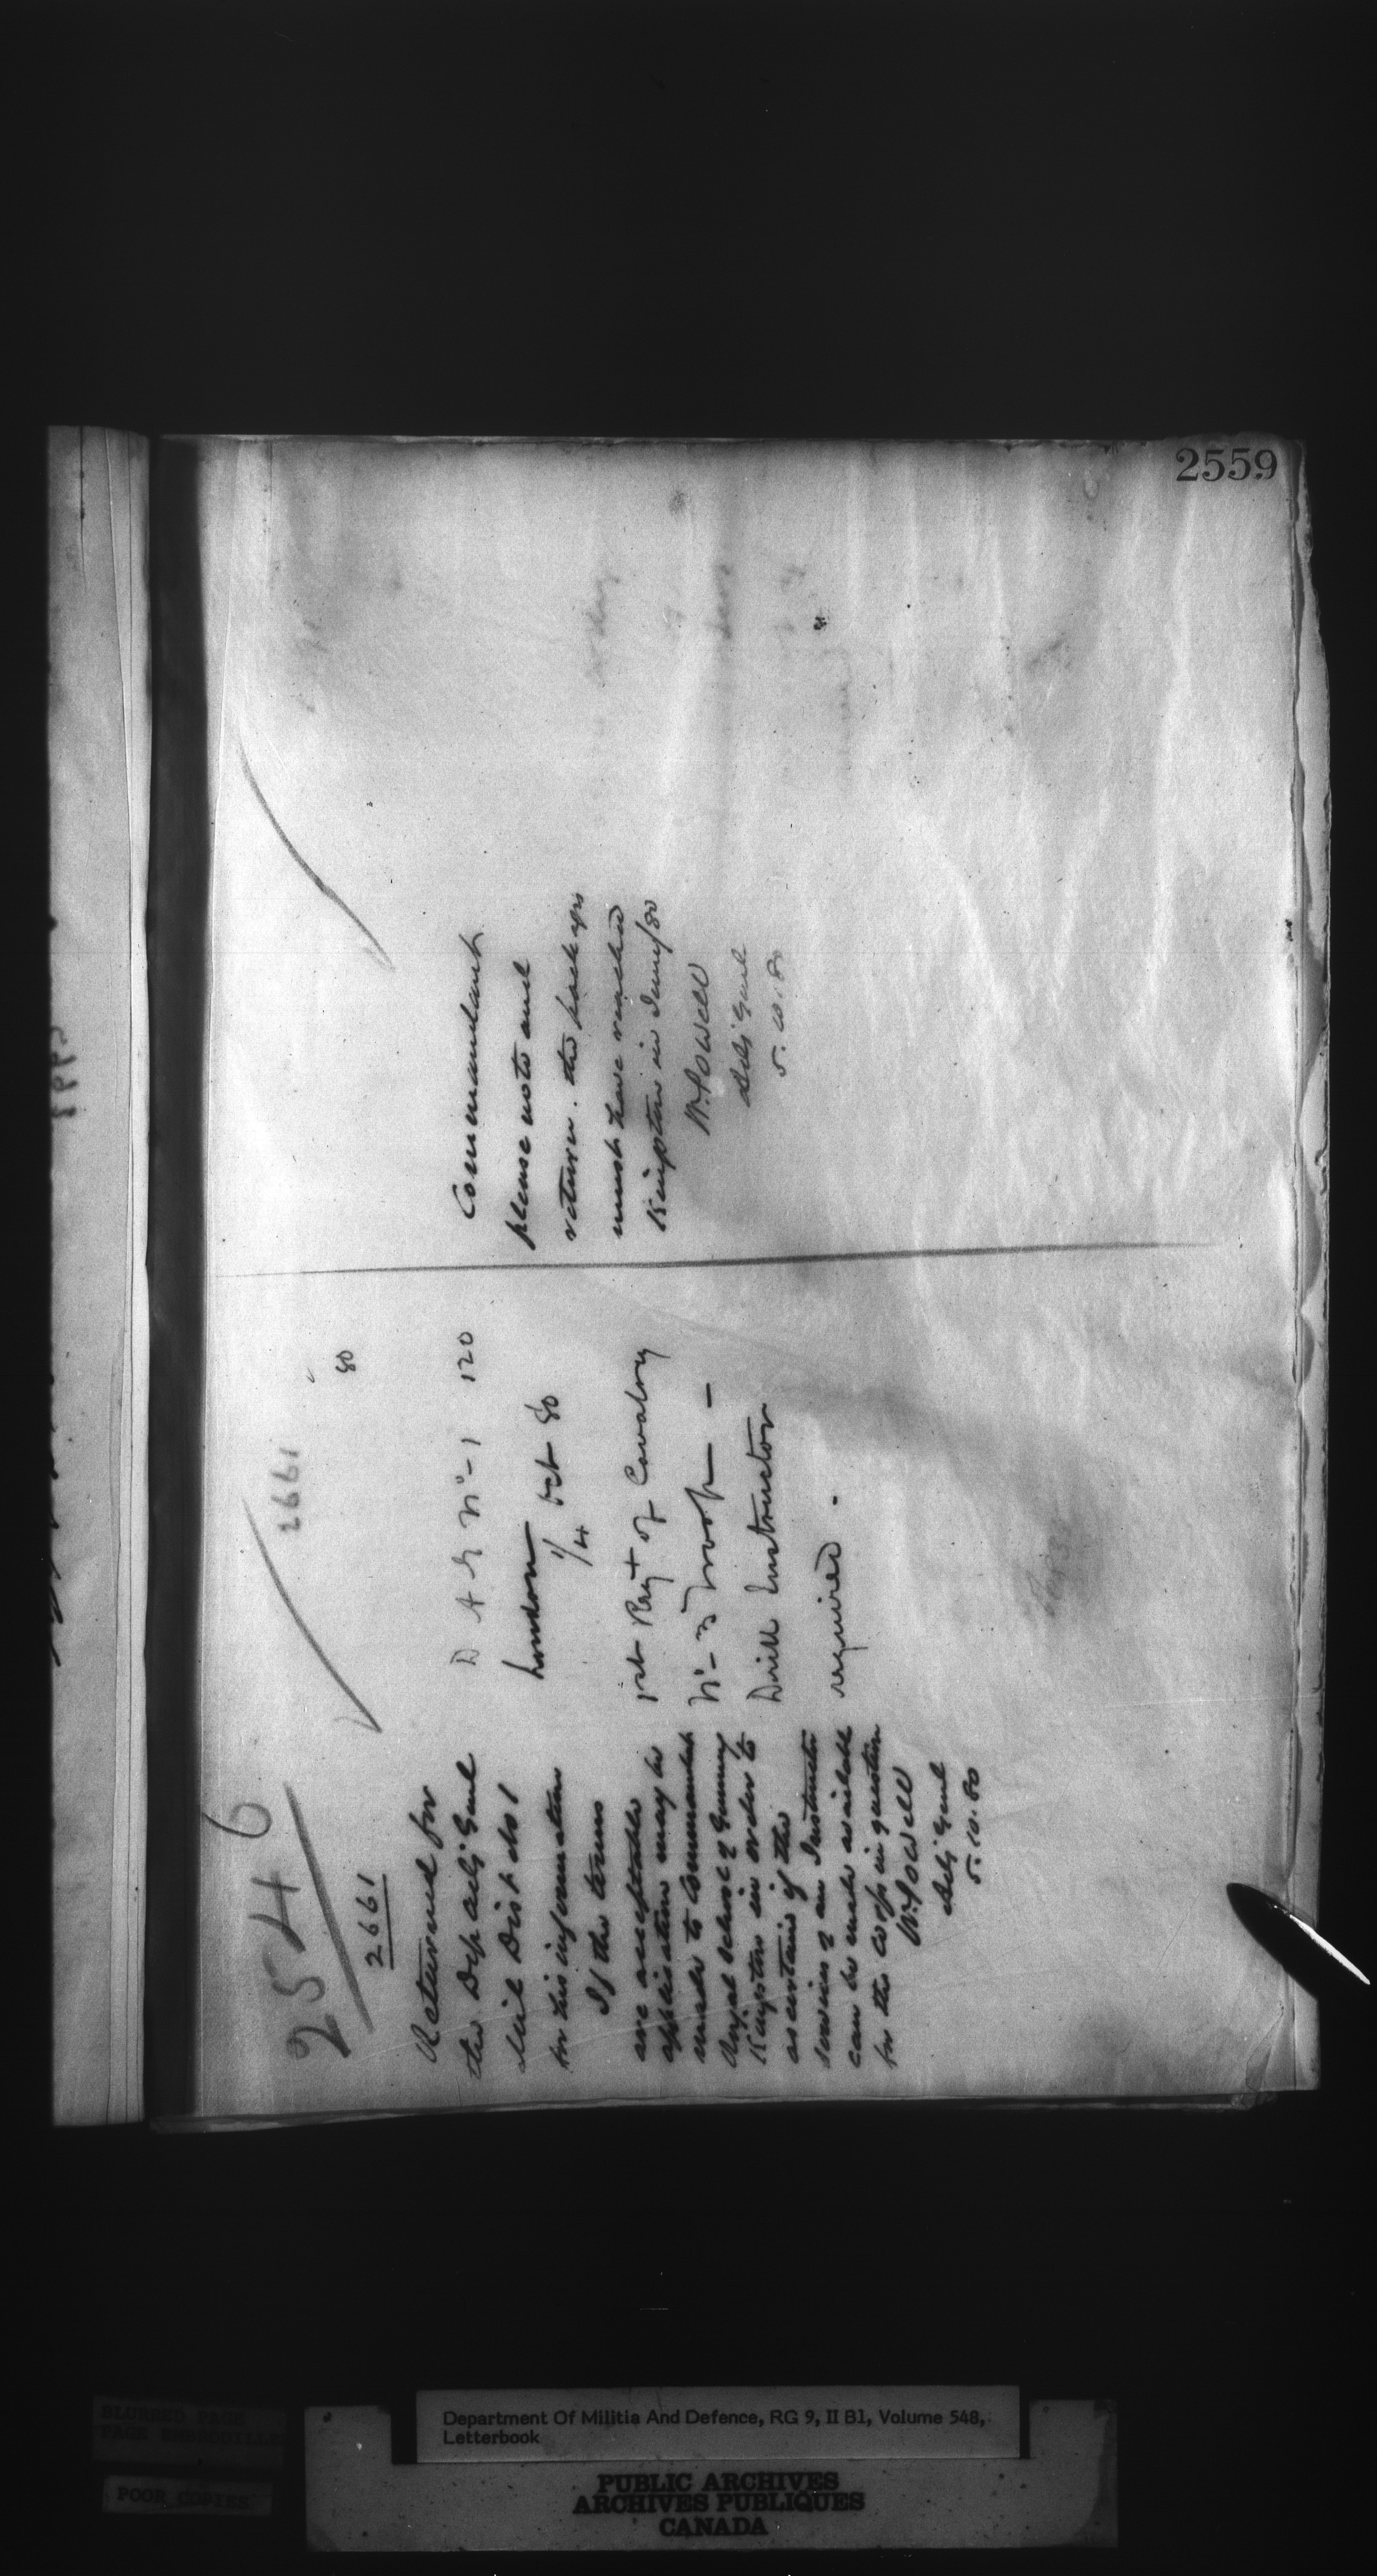 2559
2546
2661
Returned for
the Dep adj Genl
Mil Dist No 1
for his information
If the terms
are acceptable
application may be
made to Commandant
Royal School of Gunnery
Kingston in order to
ascertain if the
services of an Instructor
can be made available
for the corps in question
W. Powell
Adj Genl
5.10.80
2661
80
D A G No 1 120
London
1/4 Oct 80
1st Regt of Cavalry
No 3 Troop —
Drill Instructor
required.
Commandant
please note and
return. the packages
must have reached
Kingston in June/80
W. Powell
Adj Genl
5.10.80
Department Of Militia And Defence, RG 9, II B1, Volume 548,
Letterbook
PUBLIC ARCHIVES
ARCHIVES PUBLIQUES
CANADA
BLURRED PAGE
POOR COPIES